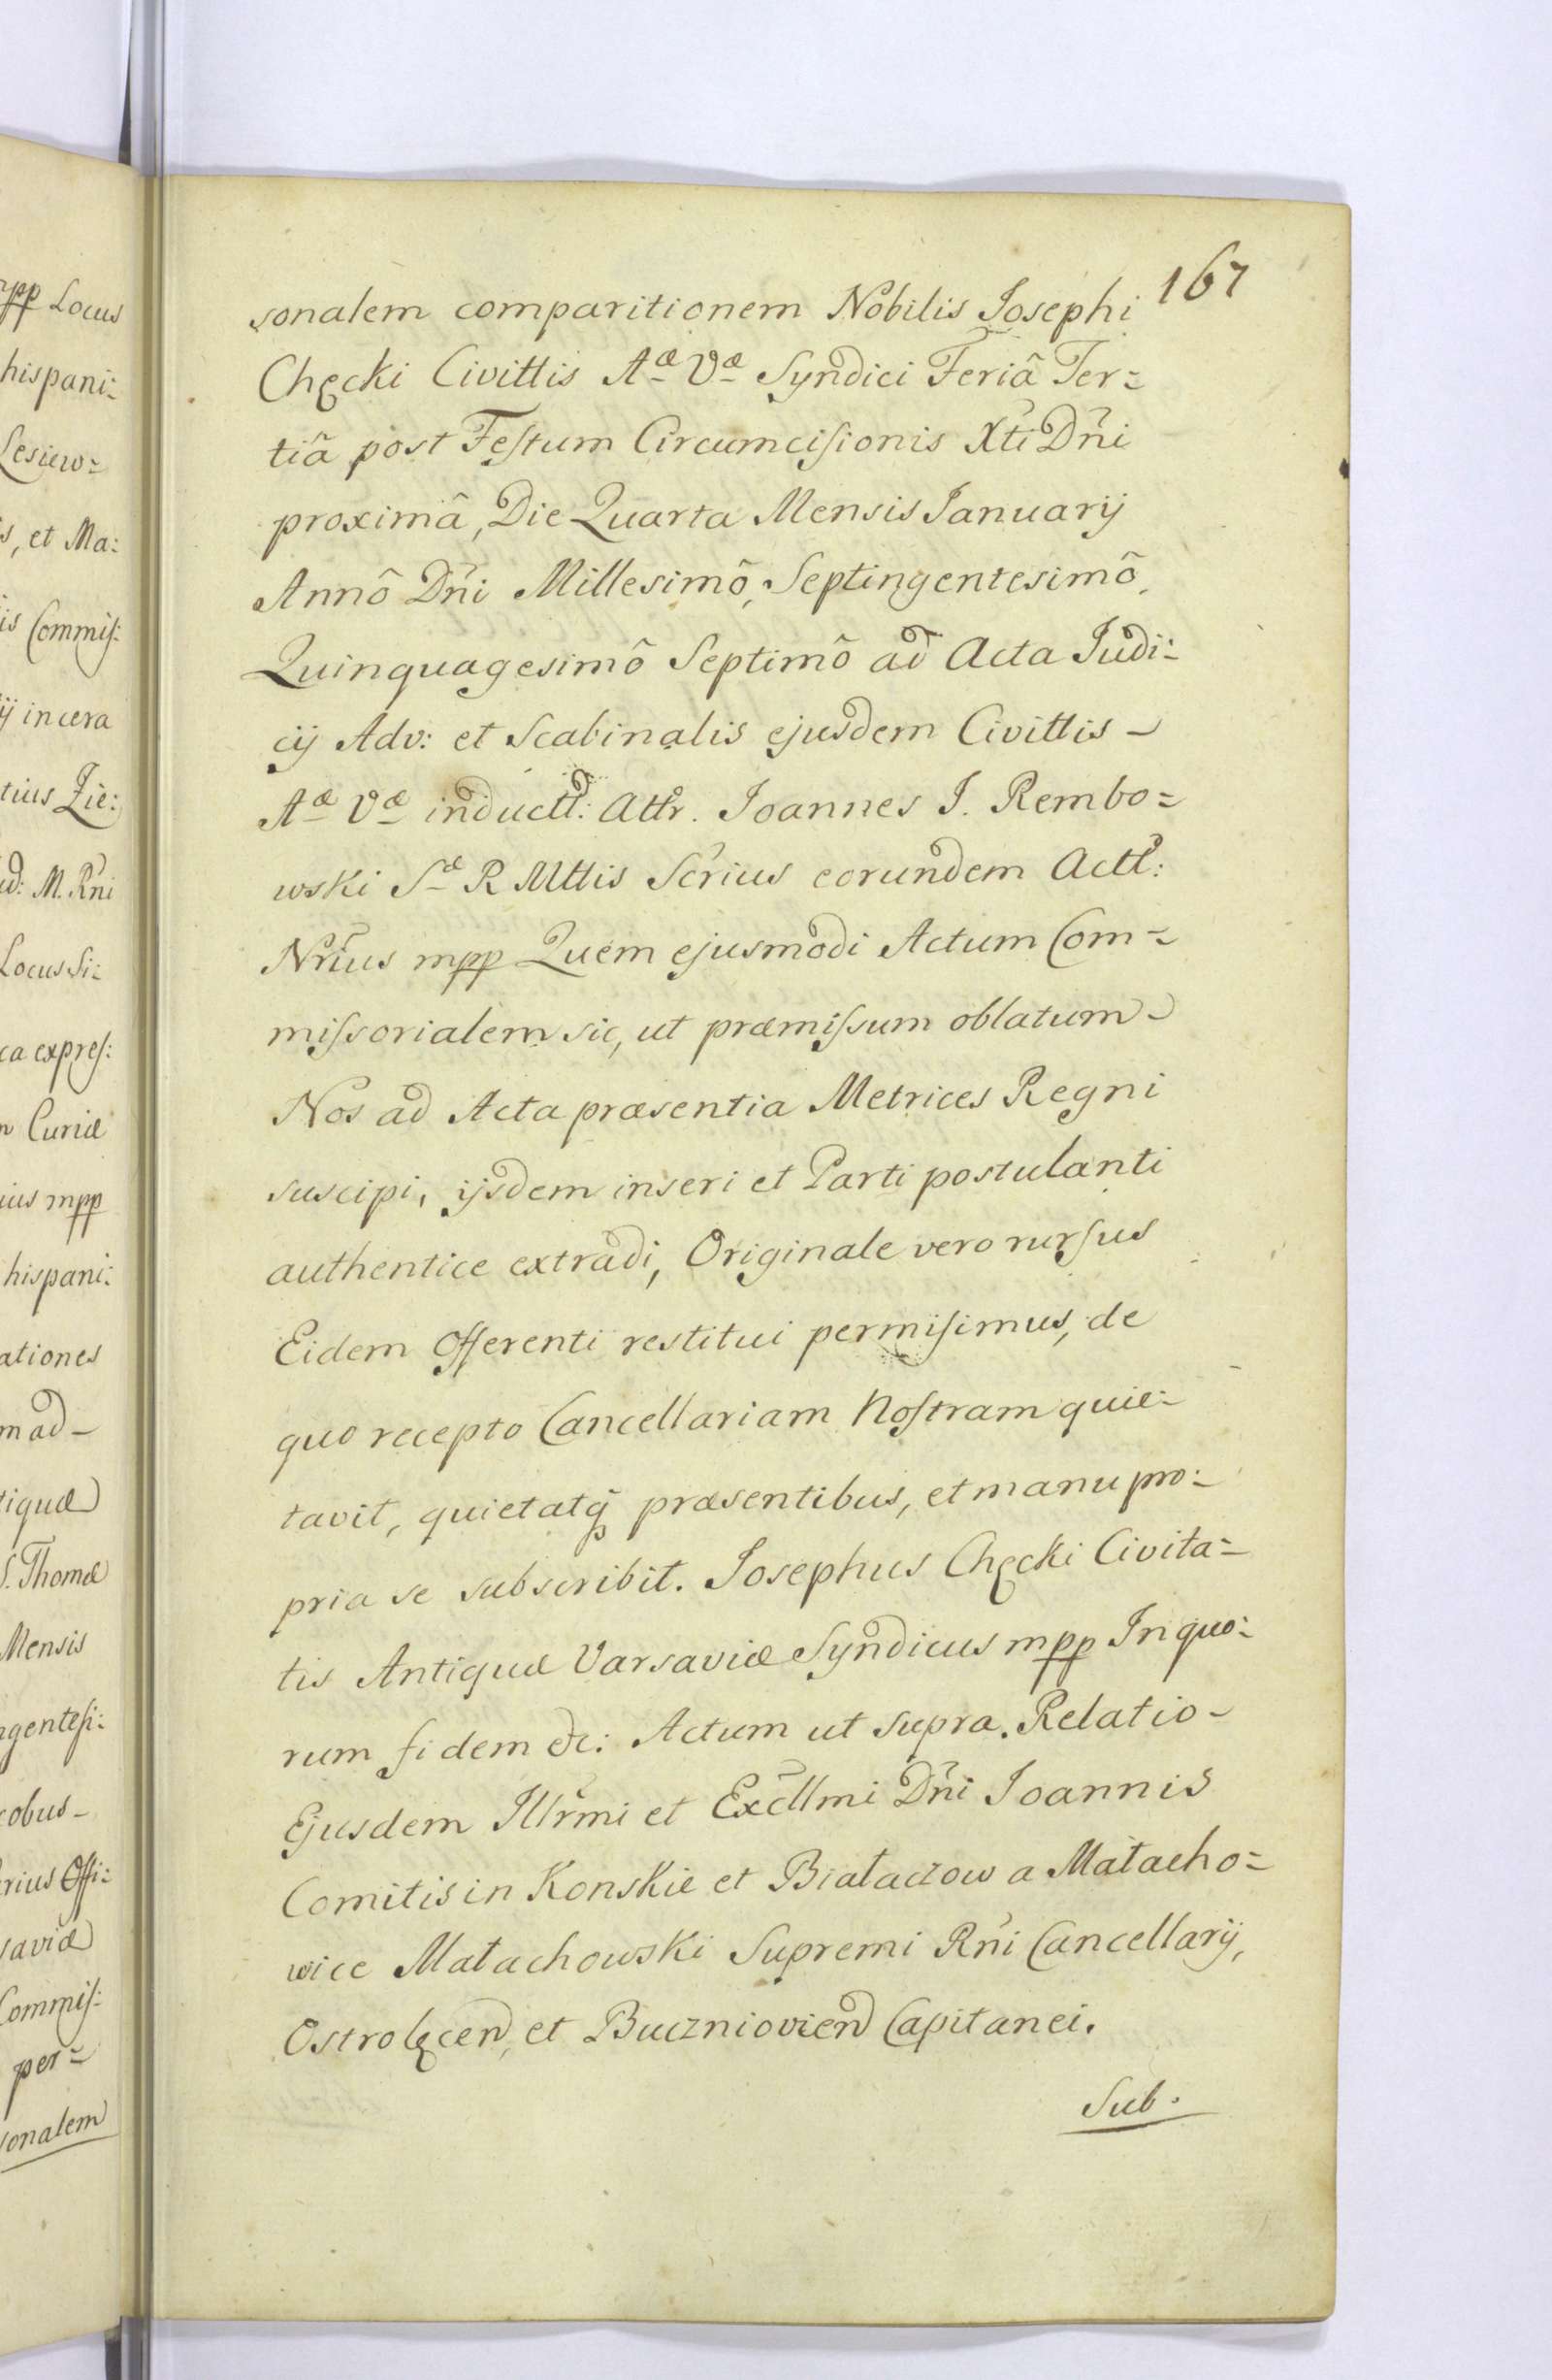 167
sonalem comparitionem Nobilis Josephi
Chęcki Civittis Aæ Væ Syndici Feriâ Ter=
tiâ post Festum Circumcisionis Xti Dñi
proximâ, Die Quarta Mensis Januarij
Annô Dñi Millesimô, Septingentesimô,
Quinquagesimô Septimô ad Acta Judi=
cij Adv: et Scabinalis ejusdem Civittis –
Aæ Væ inductt: Attr. Joannes J. Rembo=
wski Sæ R Mttis Scrius eorundem Actt:
Nrius mpp Quem ejusmodi Actum Com=
missorialem sic, ut præmissum oblatum –
Nos ad Acta præsentia Metrices Regni
suscipi, ijsdem inseri et Parti postulanti
authentice extradi, Originale vero rursus
Eidem Offerenti restitui permisimus, de
quo recepto Cancellariam Nostram quie=
tavit, quietatq̃ præsentibus, et manu pro=
pria se subscribit. Josephus Chęcki Civita=
tis Antiquæ Varsaviæ Syndicus mpp In quo=
rum fidem &c: Actum ut supra. Relatio –
Ejusdem Illrmi et Excllmi Dñi Joannis
Comitis in Konskie et Białaczow a Małacho=
wice Małachowski Supremi Rñi Cancellarij,
Ostrołęcen, et Buczniovien Capitanei.
Sub.
mpp Locus
hispani:
Lesiew=
s, et Ma:
is Commis:
ij in cera
tius Zie:
d: M. Rñi
Locus Si:
ca expres:
n Curiæ
ius mpp
hispani:
ationes
m ad –
tiquæ
S. Thomæ
Mensis
ngentesi:
cobus –
rius Offi:
saviæ
Commis:
per =
sonalem